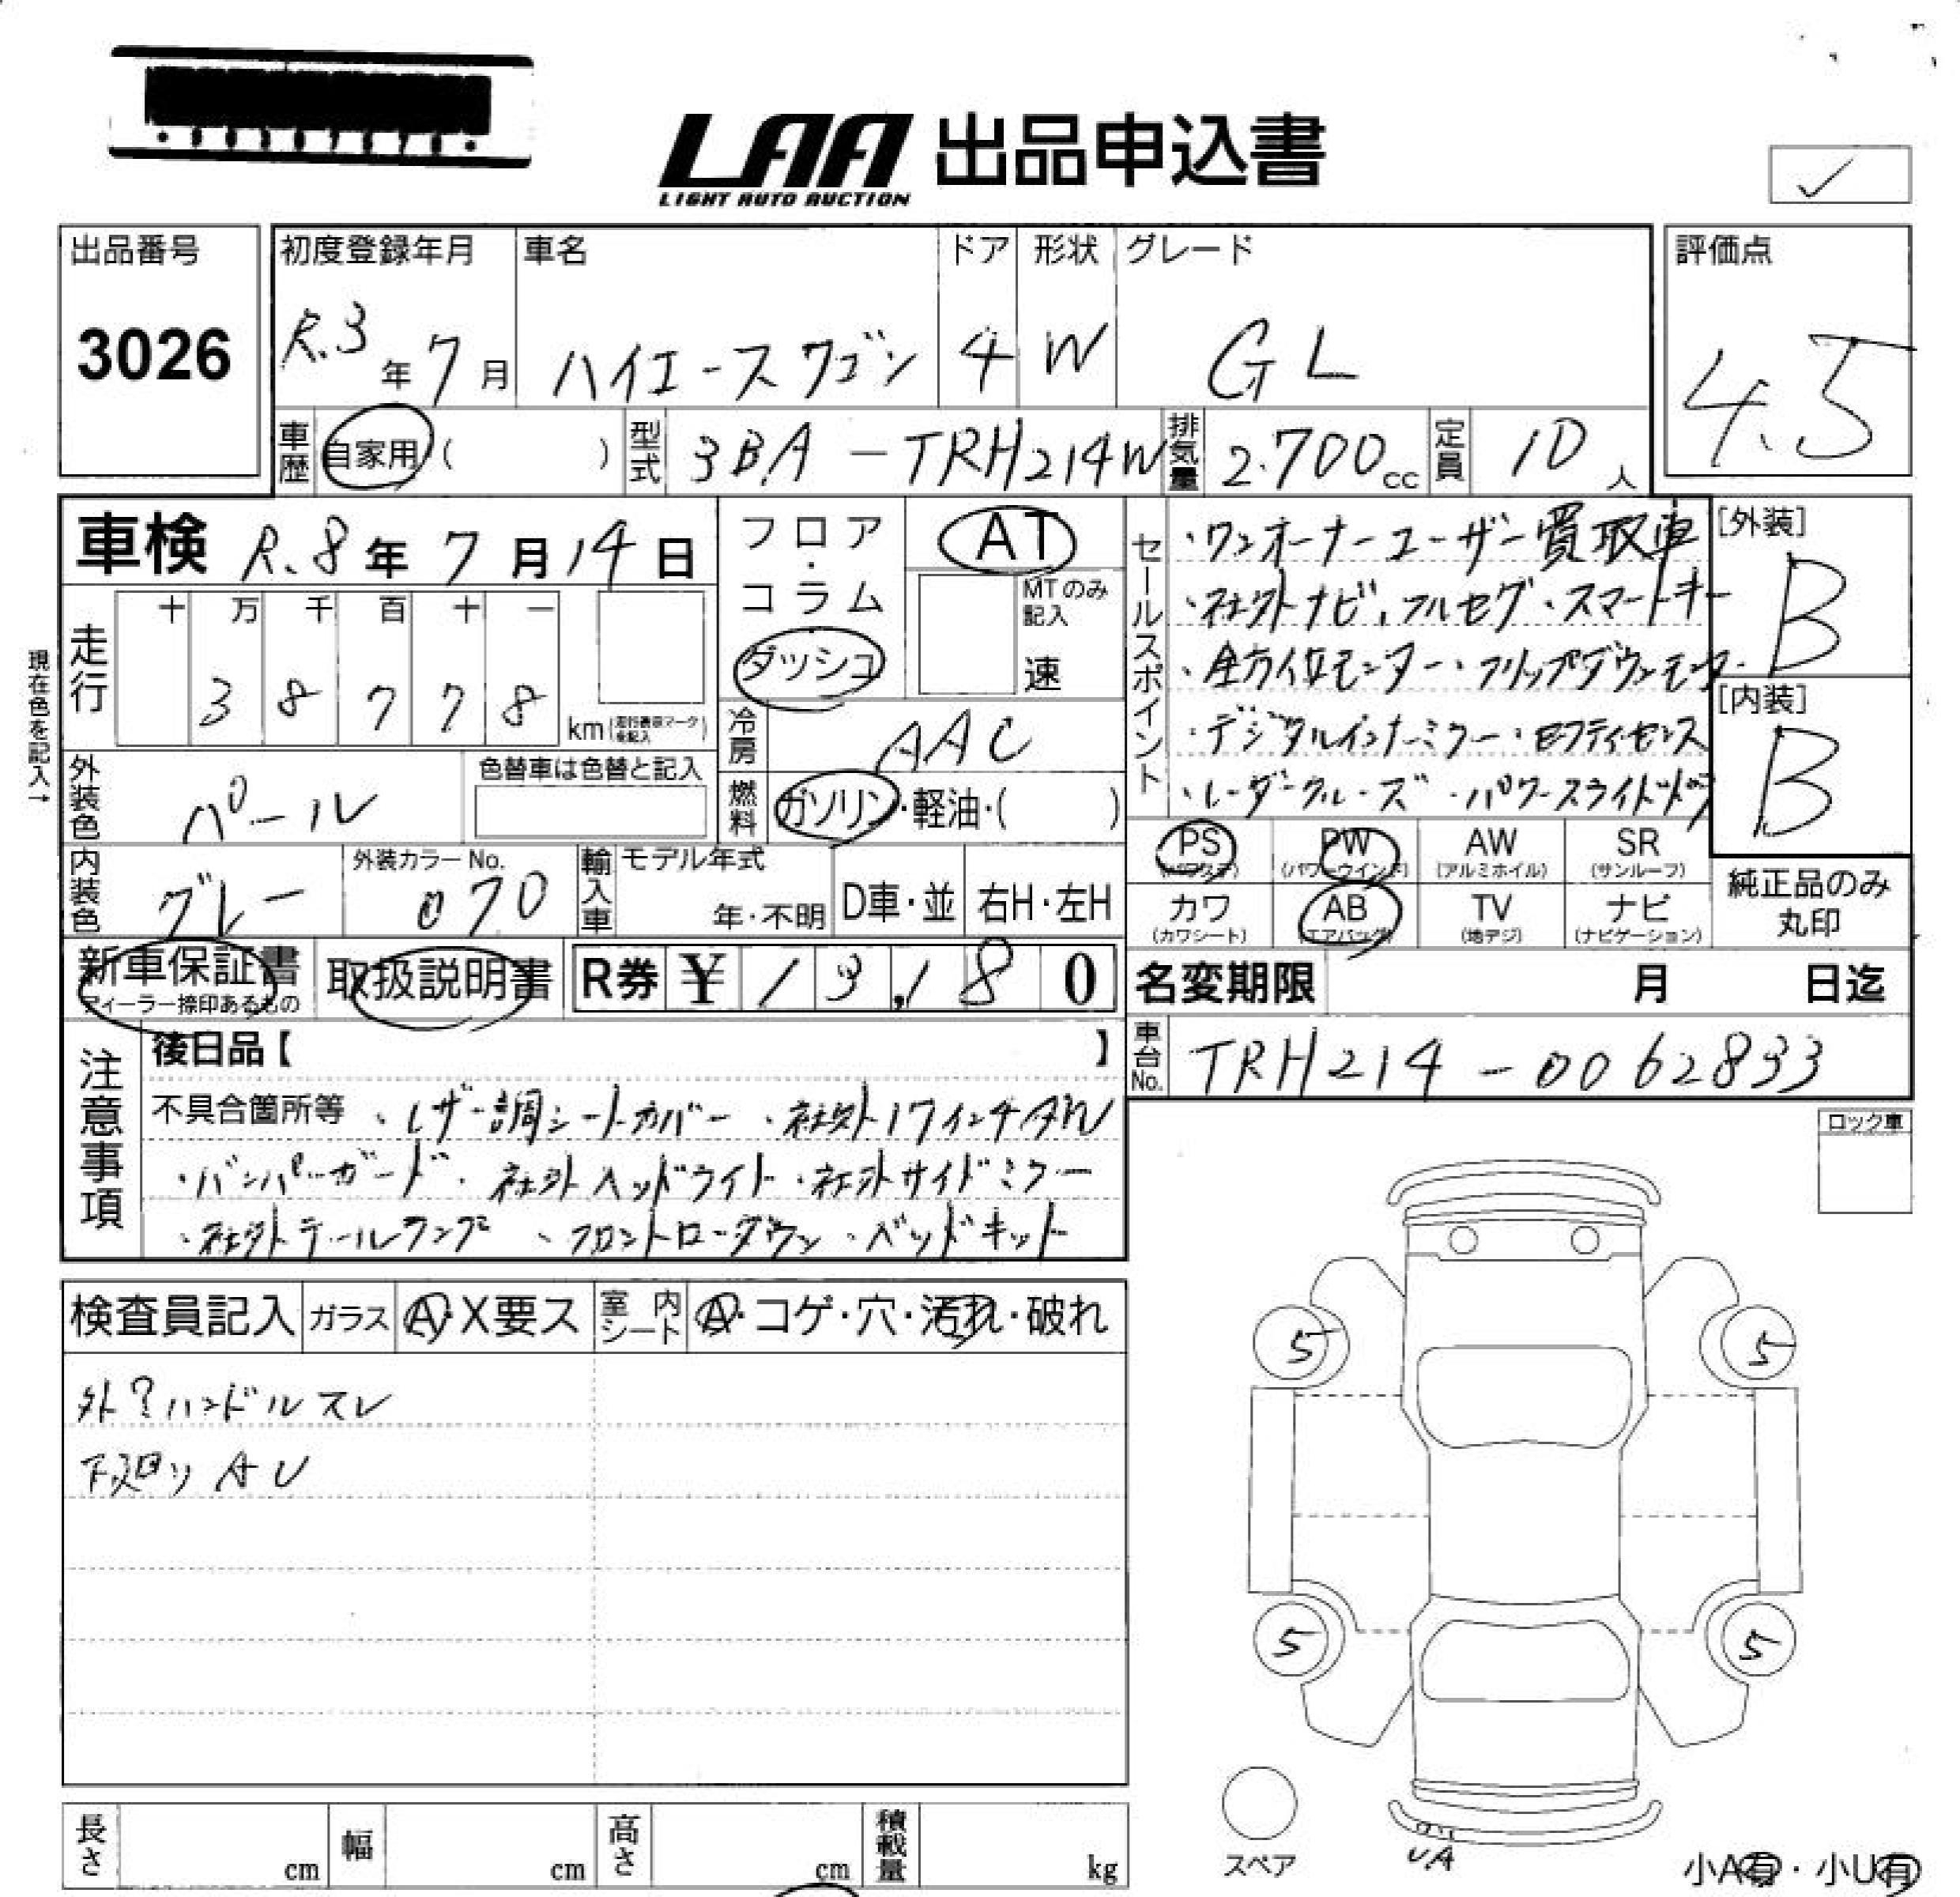 LAA 出品申込書
LIGHT AUTO AUCTION
✓
出品番号
3026
初度登録年月
R.3年7月
車名
ハイエースワゴン
ドア
4
形状
W
グレード
GL
評価点
4.5
車歴 自家用 ( )
型式 3BA-TRH214W
排気量 2.700cc
定員 10人
車検 R.8年7月14日
フロア・コラム
ダッシュ
AT
MTのみ記入
速
現在色を記入→
走行
十 万 千 百 十 一
3 8 7 7 8 km (走行表示マーク未記入)
冷房 AAC
外装色 パール
色替車は色替と記入
燃料 ガソリン・軽油・( )
内装色 グレー
外装カラーNo. 070
輸入車 モデル年式
年・不明
D車・並
右H・左H
新車保証書
ディーラー捺印あるもの
取扱説明書
R券 ¥13,180
セールスポイント
・ワンオーナーユーザー買取車
・社外ナビ、フルセグ・スマートキー
・全方位モニター・フリップダウンモニター
・デジタルインナーミラー・セフティセンス
・レーダークルーズ・パワースライドドア
[外装]
B
[内装]
B
PS (パワステ)
PW (パワーウインド)
AW (アルミホイル)
SR (サンルーフ)
カワ (カワシート)
AB (エアバッグ)
TV (地デジ)
ナビ (ナビゲーション)
純正品のみ
丸印
名変期限 月 日迄
車台No. TRH214-0062833
注意事項
後日品【 】
不具合箇所等 ・レザー調シートカバー ・社外17インチAW
・バンパーガード・社外ヘッドライト・社外サイドミラー
・社外テールランプ ・フロントローダウン・ベッドキット
ロック車
検査員記入
ガラス A・X要ス
室内シート A・コゲ・穴・汚れ・破れ
ハンドルスレ
下廻りAU
5
5
5
5
スペア
UA
長さ cm
幅 cm
高さ cm
積載量 kg
小A有・小U有